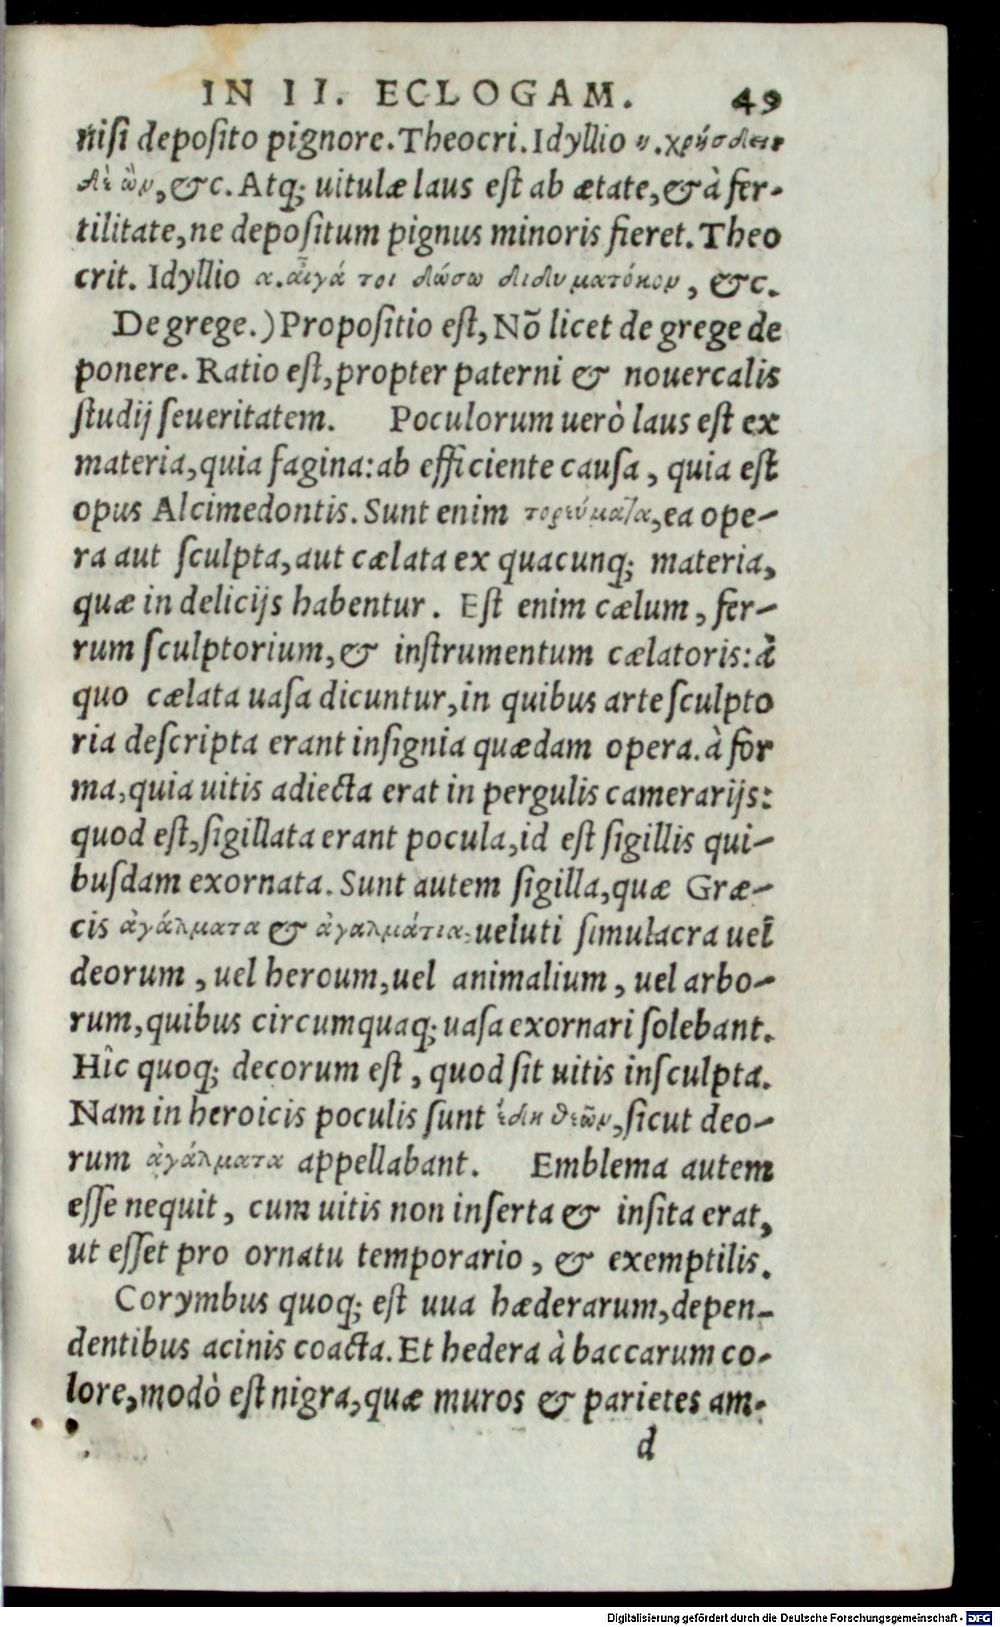 IN II. ECLOGAM. 49
nisi deposito pignore. Theocri. Idyllio
&c. Atq; uitulæ laus est ab ætate, & à fer-
tilitate, ne depositum pignus minoris fieret. Theo
crit. Idyllio α. αἶγά τοι δώσω διδυματόκον, &c.
De grege.) Propositio est, Nō licet de grege de
ponere. Ratio est, propter paterni & nouercalis
studij seueritatem. Poculorum uerò laus est ex
materia, quia fagina: ab efficiente causa, quia est
opus Alcimedontis. Sunt enim τορεύματα, ea ope-
ra aut sculpta, aut cælata ex quacunq; materia,
quæ in delicijs habentur. Est enim cælum, fer-
rum sculptorium, & instrumentum cælatoris: à
quo cælata uasa dicuntur, in quibus arte sculpto
ria descripta erant insignia quædam opera. à for
ma, quia uitis adiecta erat in pergulis camerarijs:
quod est, sigillata erant pocula, id est sigillis qui-
busdam exornata. Sunt autem sigilla, quæ Græ-
cis ἀγάλματα & ἀγαλμάτια, ueluti simulacra uel
deorum, uel heroum, uel animalium, uel arbo-
rum, quibus circumquaq; uasa exornari solebant.
Hîc quoq; decorum est, quod sit uitis insculpta.
Nam in heroicis poculis sunt θεῶν, sicut deo-
rum ἀγάλματα appellabant. Emblema autem
esse nequit, cum uitis non inserta & insita erat,
ut esset pro ornatu temporario, & exemptilis.
Corymbus quoq; est uua hæderarum, depen-
dentibus acinis coacta. Et hedera à baccarum co-
lore, modò est nigra, quæ muros & parietes am-
d
Digitalisierung gefördert durch die Deutsche Forschungsgemeinschaft - DFG